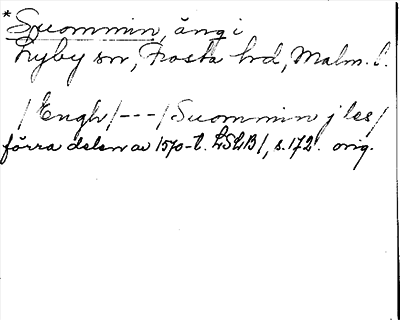 * Suommin, äng i
Lyby sn, Frosta hd, Malm. l.
/Engh/---/Suommin j les/
förra delen av 1570-t. LSLB1, s.172. orig.